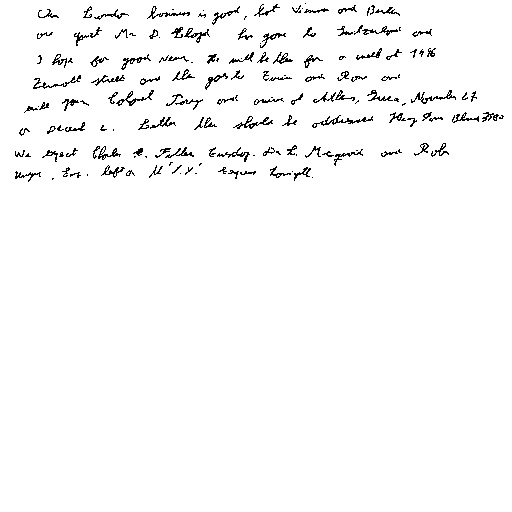 Our London business is good, but Vienna and Berlin
are quiet Mr D. Lloyd has gone to Switzerland and
I hope for good news. He will be there for a week at 1496
Zermott street and then goes to Turin and Rome and
will join Colonel Parry and arrive at Athens, Greece, November 27
or Decent 2. Letter there should be addressed King James Blvd 3580
We expect Charles E. Fuller Tuesday. Dr L. McQuaid and Rob
Unger, Esq. left on
Express tonight.